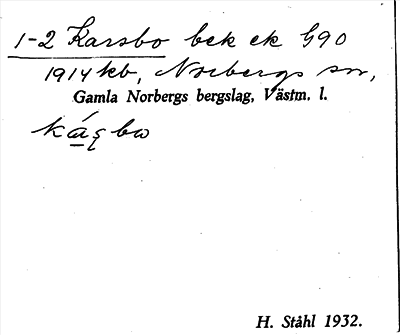 1-2 Karsbo bek ek G90
1914 kb, Norbergs sn,
Gamla Norbergs bergslag, Västm. l.
H. Ståhl 1932.